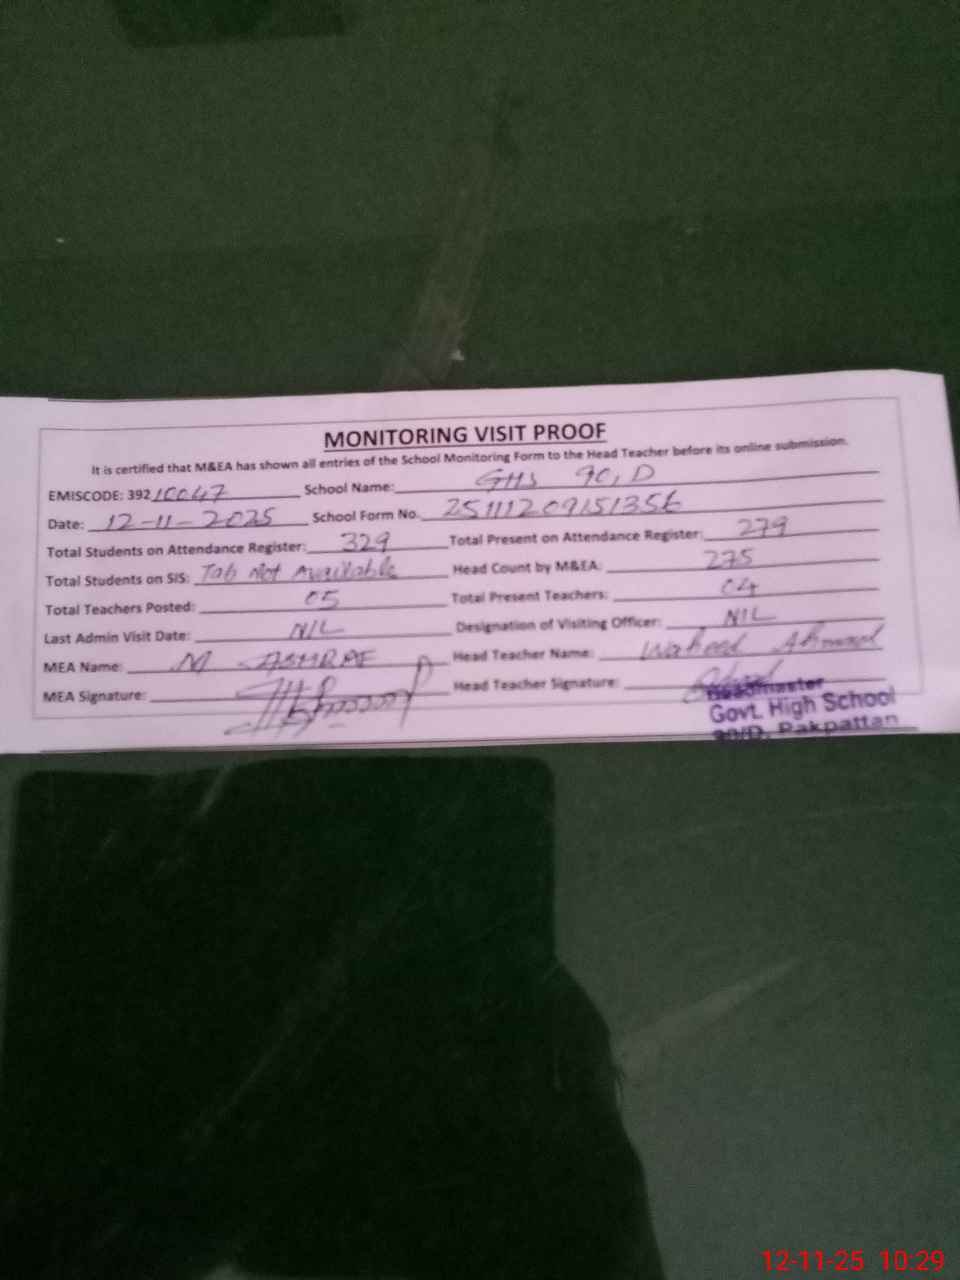 MONITORING VISIT PROOF
It is certified that M&EA has shown all entries of the School Monitoring Form to the Head Teacher before its online submission.
EMISCODE: 39210047 School Name: GHS 90, D
Date: 12-11-2025 School Form No.
Total Students on Attendance Register: 329 Total Present on Attendance Register: 279
Total Students on SIS: Tab Not Available Head Count by M&EA: 275
Total Teachers Posted: 05 Total Present Teachers: 04
Last Admin Visit Date: NIL Designation of Visiting Officer: NIL
MEA Name: M ASHRAF Head Teacher Name: Waheed Ahmad
MEA Signature: Head Teacher Signature:
Headmaster
Govt. High School
90/D, Pakpattan
12-11-25 10:29